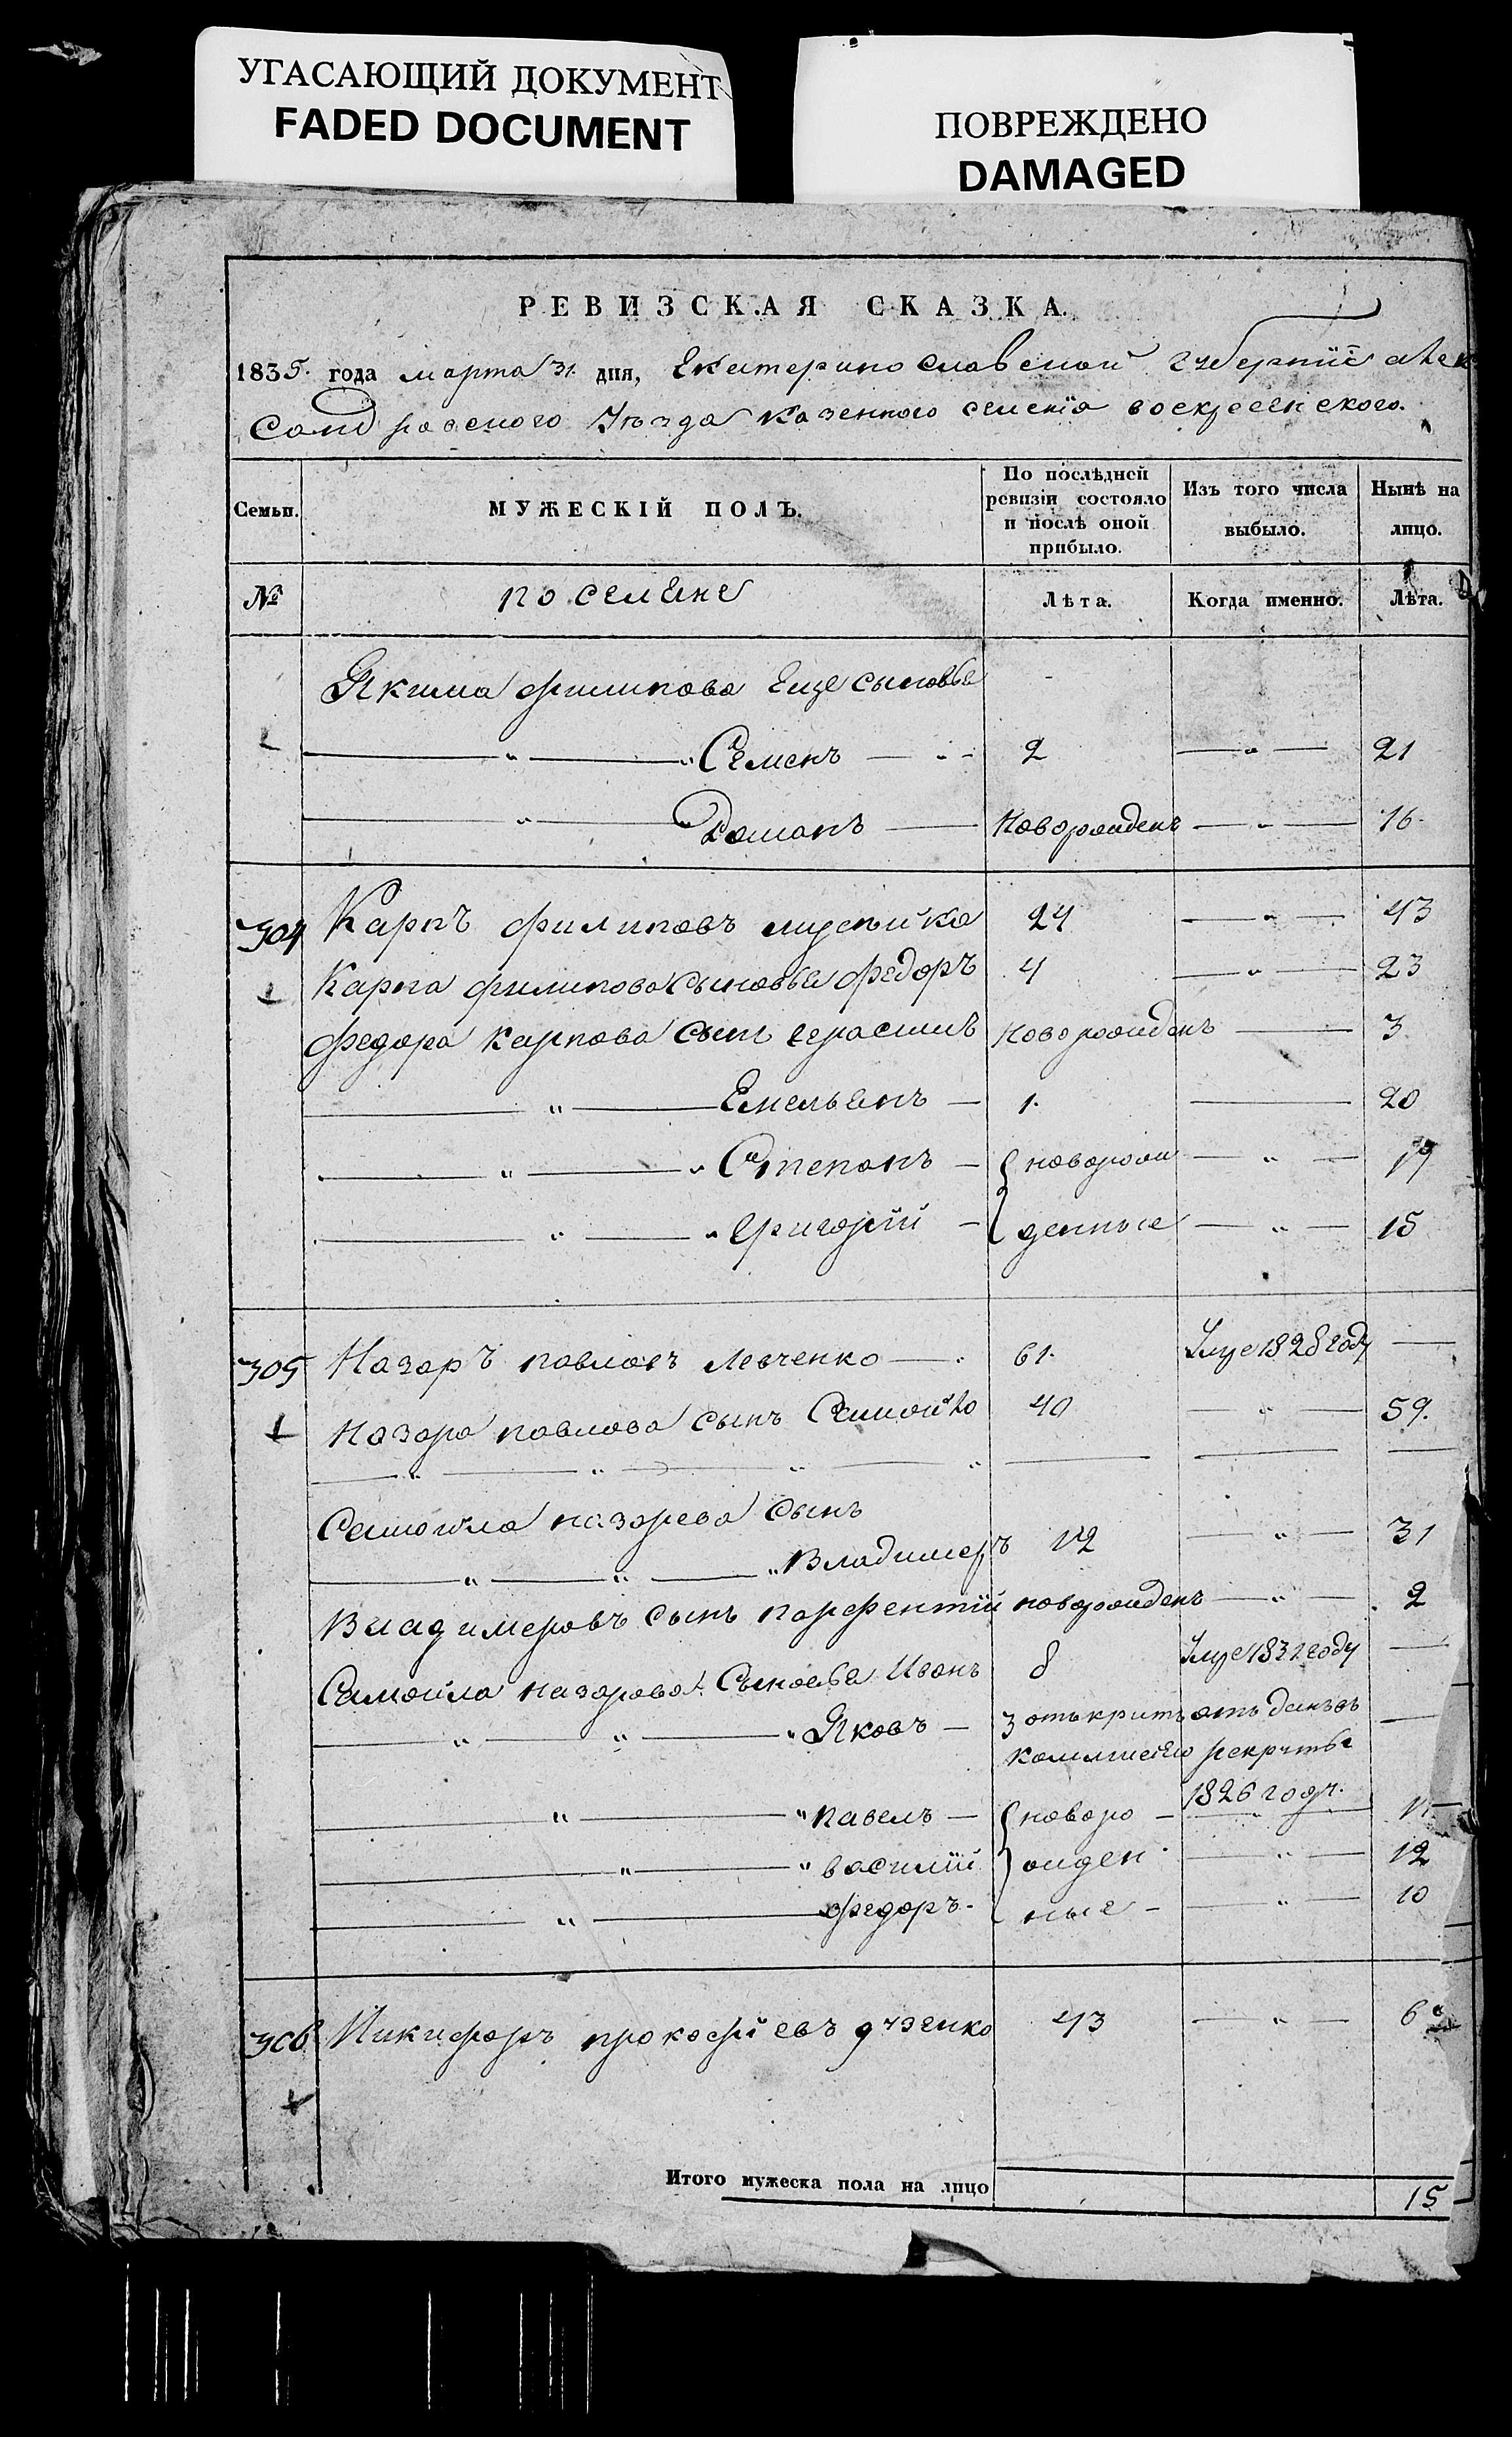 УГАСАЮЩИЙ ДОКУМЕНТ
FADED DOCUMENT
ПОВРЕЖДЕНО
DAMAGED
РЕВИЗСКАЯ СКАЗКА.
1835. года марта 31. дня, Екатеринославской губернїи Алек
сандровского Уѣзда казенного селенїя воскресенского.
Семьи. МУЖЕСКІЙ ПОЛЪ. По послѣдней ревизіи состояло и послѣ оной прибыло. Изъ того числа выбыло. Нынѣ на лицо.
№ поселяне Лѣта. Когда именно. Лѣта.
Якима филипова Еще сыновья
" " Семенъ 2 " 21
" " Романъ новорожденъ " 16
304 Карпъ филиповъ 24 " 43
Карпа филипова Сыновья федоръ 4 " 23
федора карпова сынъ герасимъ новорожденъ 3
" Емельянъ 1. 20
" " Степанъ новорож " 17
" " григорїй денные " 15
305 Назаръ павловъ левченко 61. Умре 1828 году
назара павлова сынъ Самойло 40 " 59.
Самойла назарова сынъ
" " " Владимеръ 12 " 31
Владимеровъ сынъ парфентїй новорожденъ " 2
Самойла назарова Сыновья Иванъ 8 Умре 1832 году
" " " Яковъ 3 отданъ въ
рекруты
1826 году.
" " павелъ новоро " 14
" " василїй жден " 12
" федоръ ные " 10
306 Никифоръ прокофїевъ дузенко 43 "
Итого мужеска пола на лицо 15